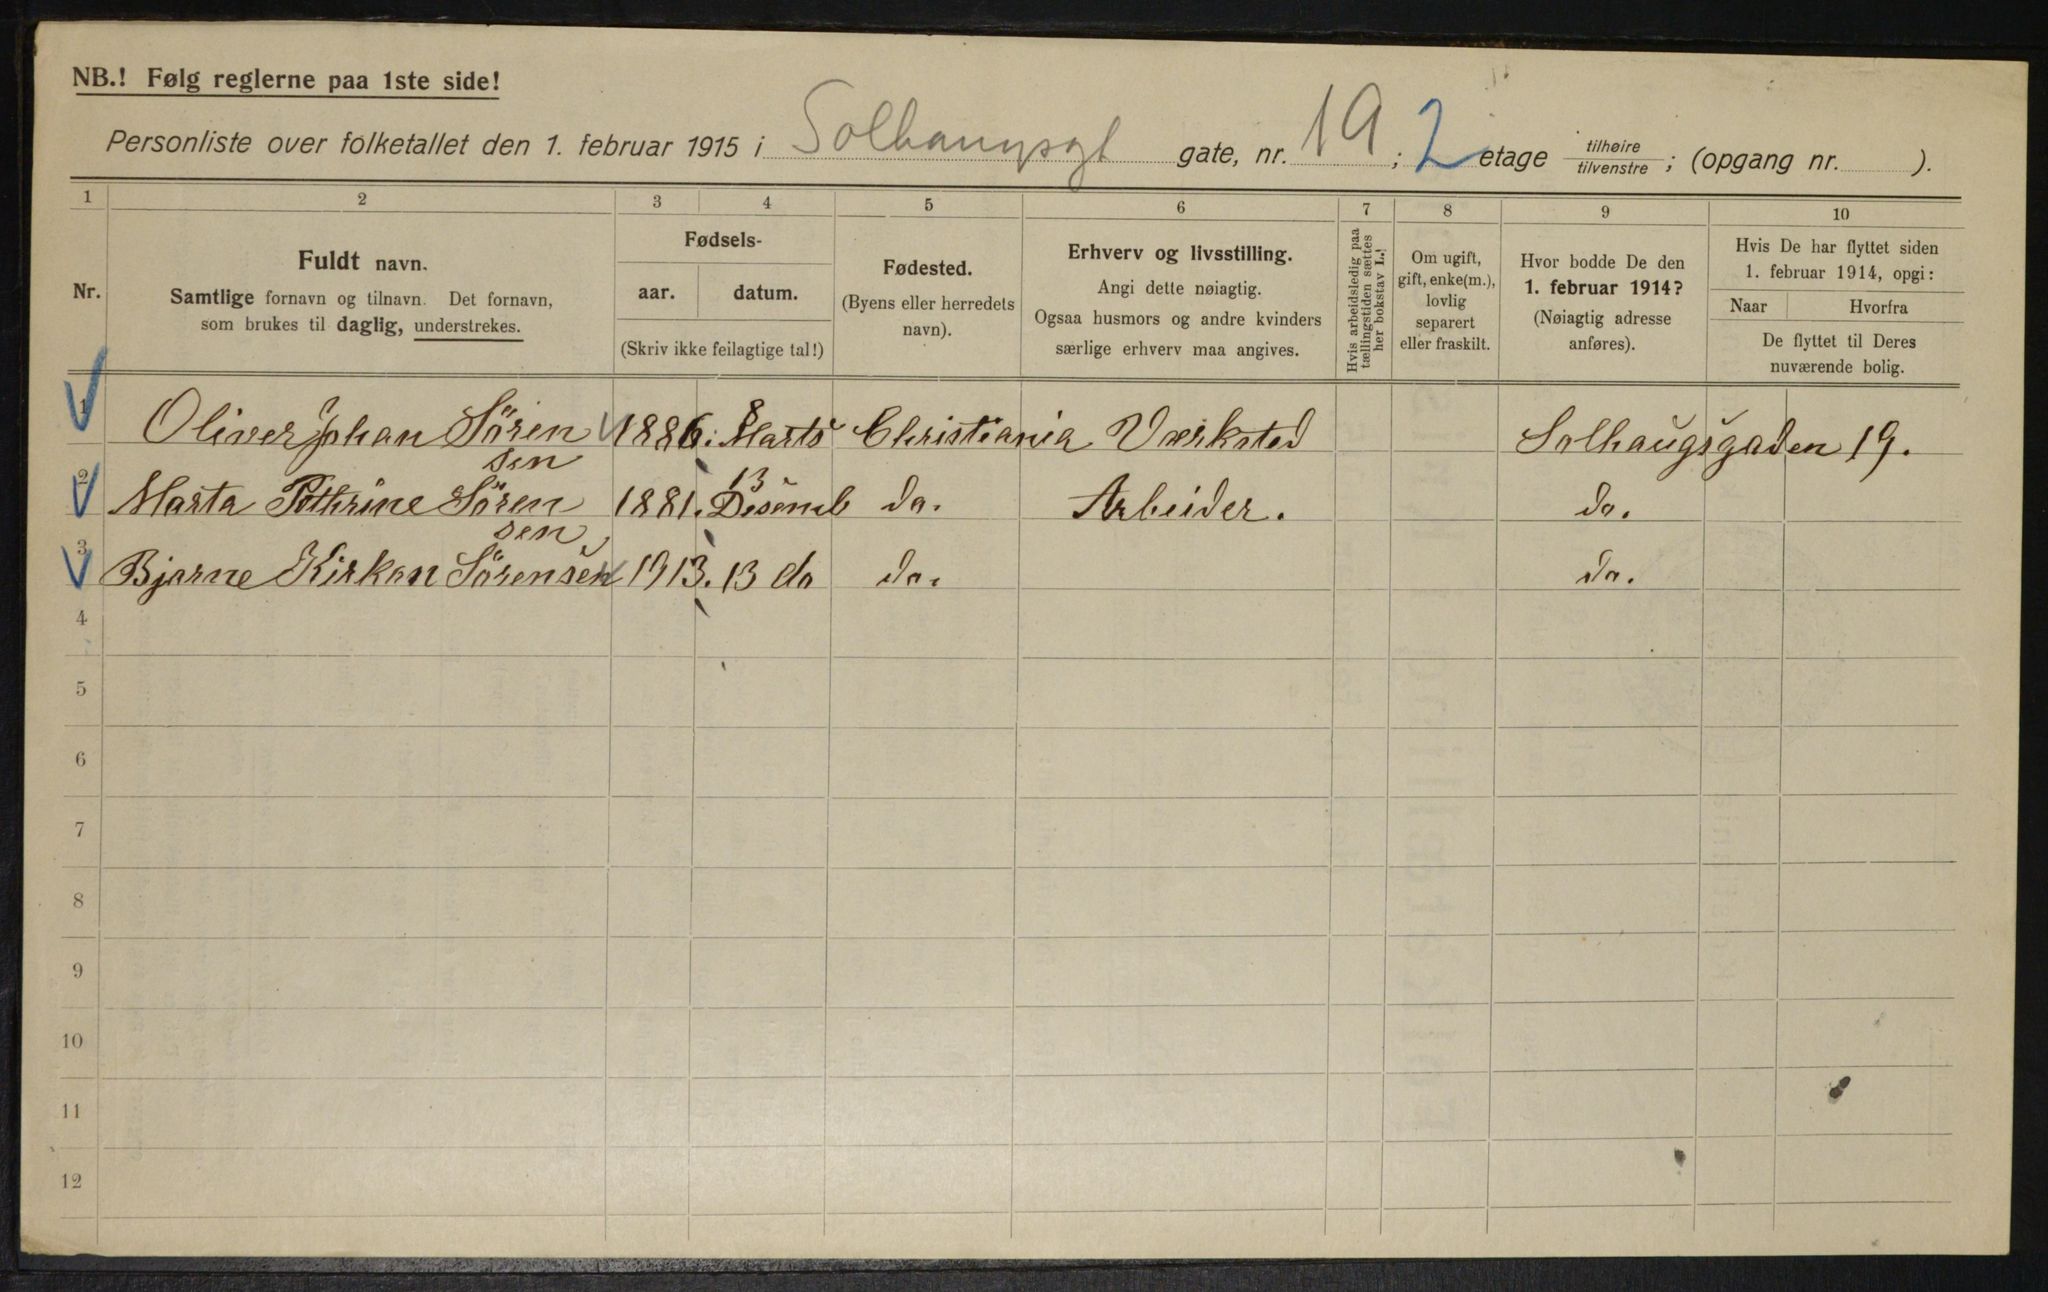 NB.! Følg reglerne paa 1ste side!
Personliste over folketallet den 1. februar 1915 i Solhaugsgt gate, nr. 19; 2 etage tilhøire tilvenstre; (opgang nr. ).
1 2 3 4 5 6 7 8 9 10
Nr.
Fuldt navn.
Samtlige fornavn og tilnavn. Det fornavn,
som brukes til daglig, understrekes.
Fødsels-
aar. datum.
(Skriv ikke feilagtige tal!)
Fødested.
(Byens eller herredets
navn).
Erhverv og livsstilling.
Angi dette nøiagtig.
Ogsaa husmors og andre kvinders
særlige erhverv maa angives.
Hvis arbeidsledig paa
tællingstiden sættes
her bokstav L.!
Om ugift,
gift, enke(m.),
lovlig
separert
eller fraskilt.
Hvor bodde De den
1. februar 1914?
(Nøiagtig adresse
anføres).
Hvis De har flyttet siden
1. februar 1914, opgi:
Naar Hvorfra
De flyttet til Deres
nuværende bolig.
1 Oliver Johan Sörensen 1886. 8 Marts Christiania Værksted Solhaugsgaden 19.
2 Marta Sörensen 1881. 13 Desemb do. Arbeider. do.
3 Bjarne Sörensen 1913. 13 do do. do.
4
5
6
7
8
9
10
11
12